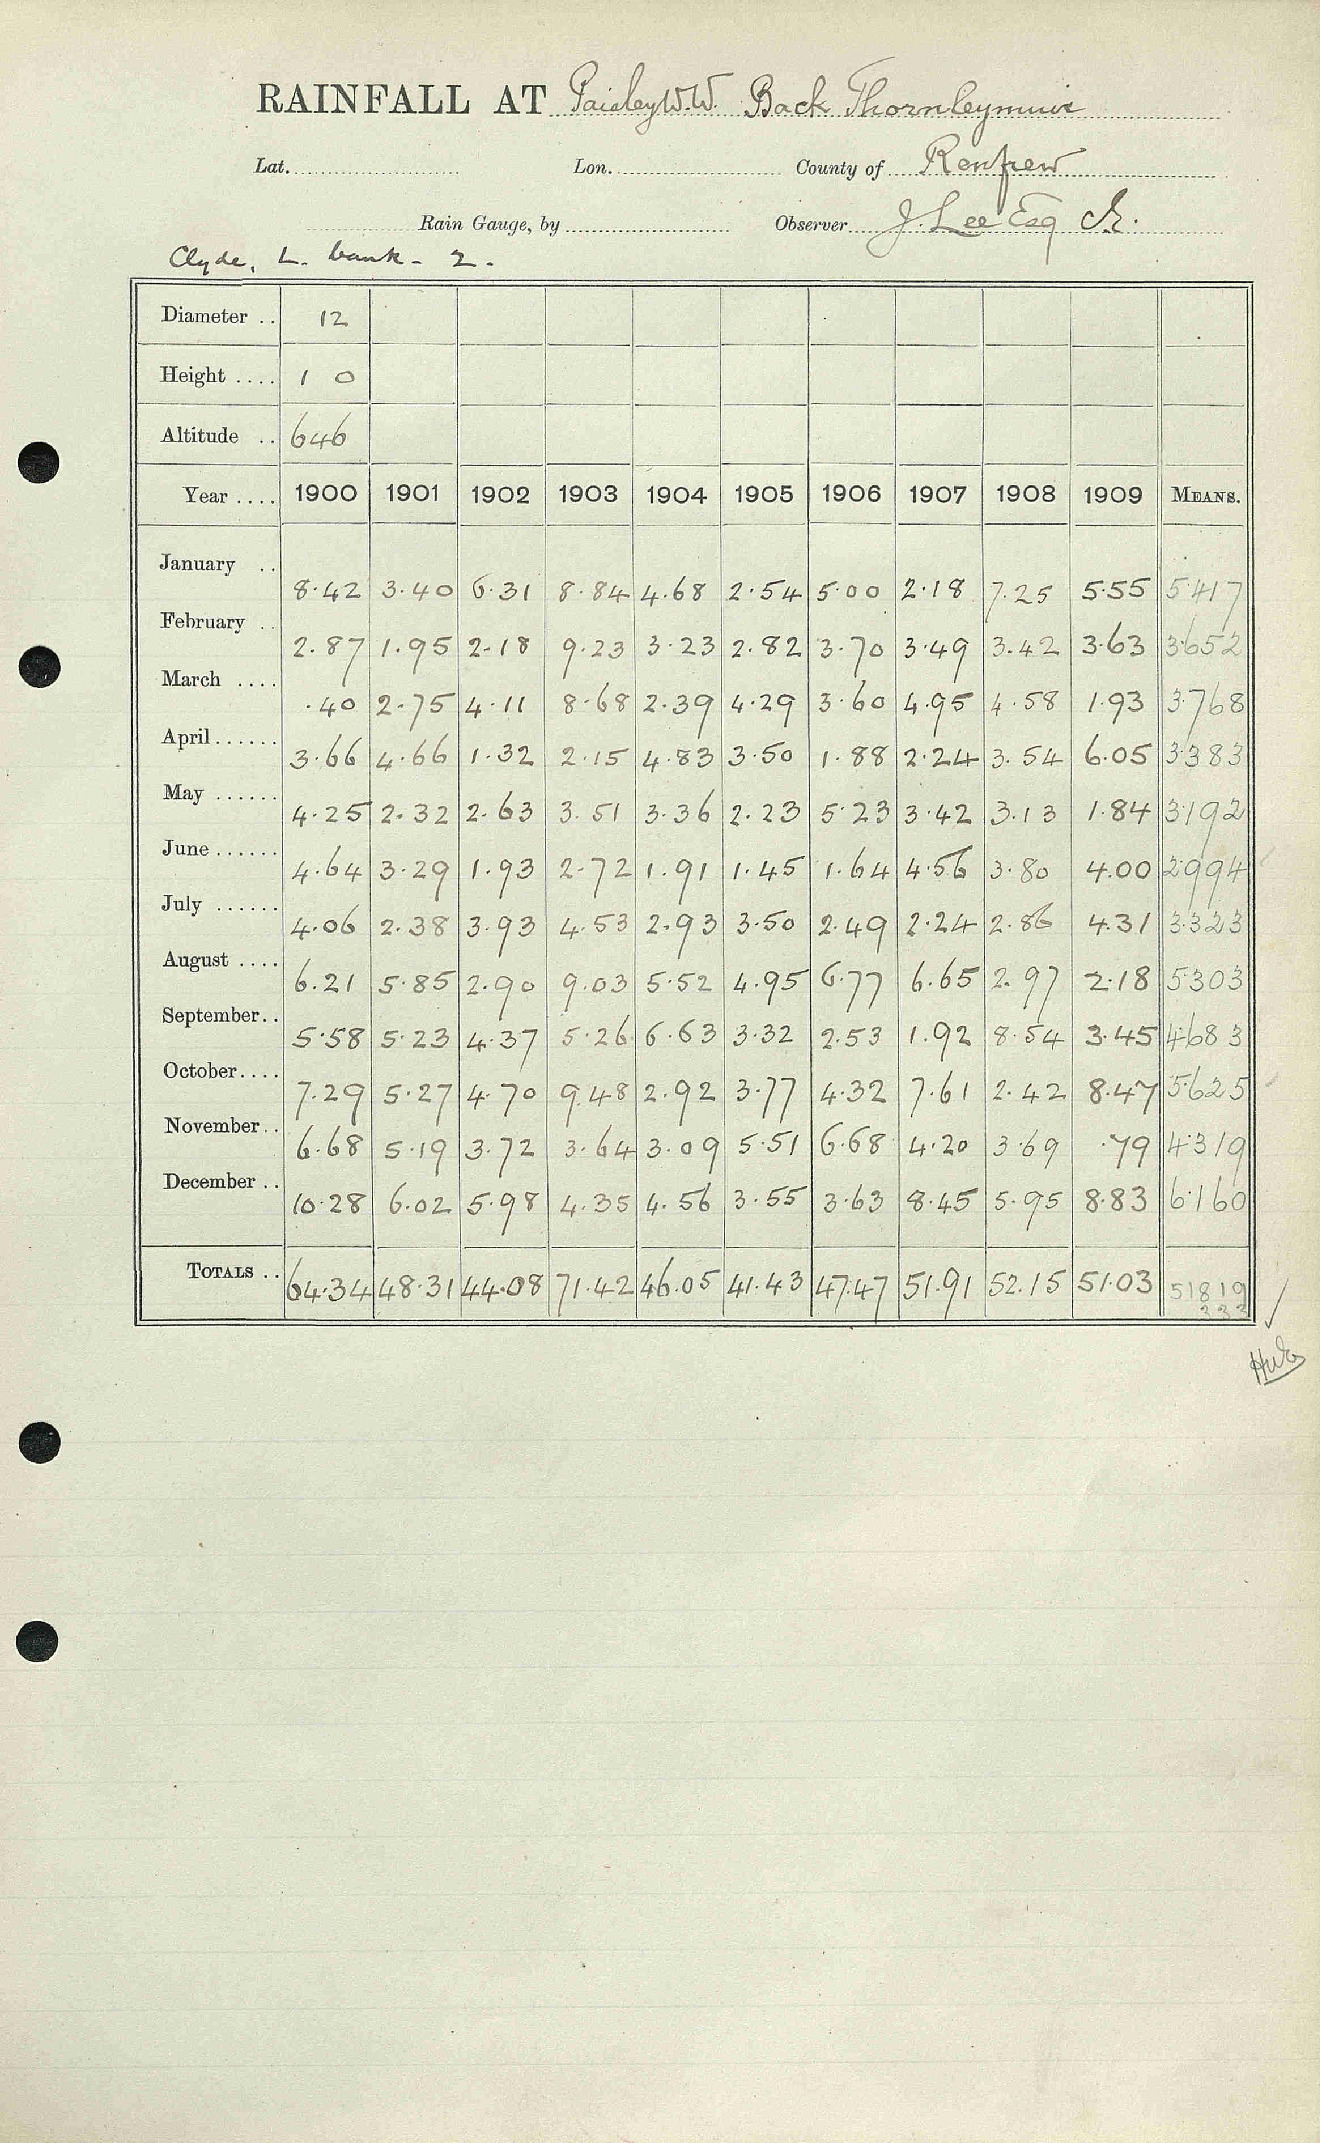 RAINFALL AT Paisley W.W. Back Thornleymuir
Lat. Lon. County of Renfrew
Rain Gauge, by Observer J. Lee Esq
Clyde, L. bank - 2.
Diameter .. 12
Height .... 1 0
Altitude .. 646
Year .... 1900 1901 1902 1903 1904 1905 1906 1907 1908 1909 MEANS.
January .. 8.42 3.40 6.31 8.84 4.68 2.54 5.00 2.18 7.25 5.55 5.417
February .. 2.87 1.95 2.18 9.23 3.23 2.82 3.70 3.49 3.42 3.63 3.652
March .... .40 2.75 4.11 8.68 2.39 4.29 3.60 4.95 4.58 1.93 3.768
April...... 3.66 4.66 1.32 2.15 4.83 3.50 1.88 2.24 3.54 6.05 3.383
May ...... 4.25 2.32 2.63 3.51 3.36 2.23 5.23 3.42 3.13 1.84 3.192
June ...... 4.64 3.29 1.93 2.72 1.91 1.45 1.64 4.56 3.80 4.00 2.994
July ...... 4.06 2.38 3.93 4.53 2.93 3.50 2.49 2.24 2.86 4.31 3.323
August .... 6.21 5.85 2.90 9.03 5.52 4.95 6.77 6.65 2.97 2.18 5303
September.. 5.58 5.23 4.37 5.26 6.63 3.32 2.53 1.92 8.54 3.45 4.683
October.... 7.29 5.27 4.70 9.48 2.92 3.77 4.32 7.61 2.42 8.47 5.625
November.. 6.68 5.19 3.72 3.64 3.09 5.51 6.68 4.20 3.69 .79 4.319
December .. 10.28 6.02 5.98 4.35 4.56 3.55 3.63 8.45 5.95 8.83 6.160
TOTALS .. 64.34 48.31 44.08 71.42 46.05 41.43 47.47 51.91 52.15 51.03 51819
333